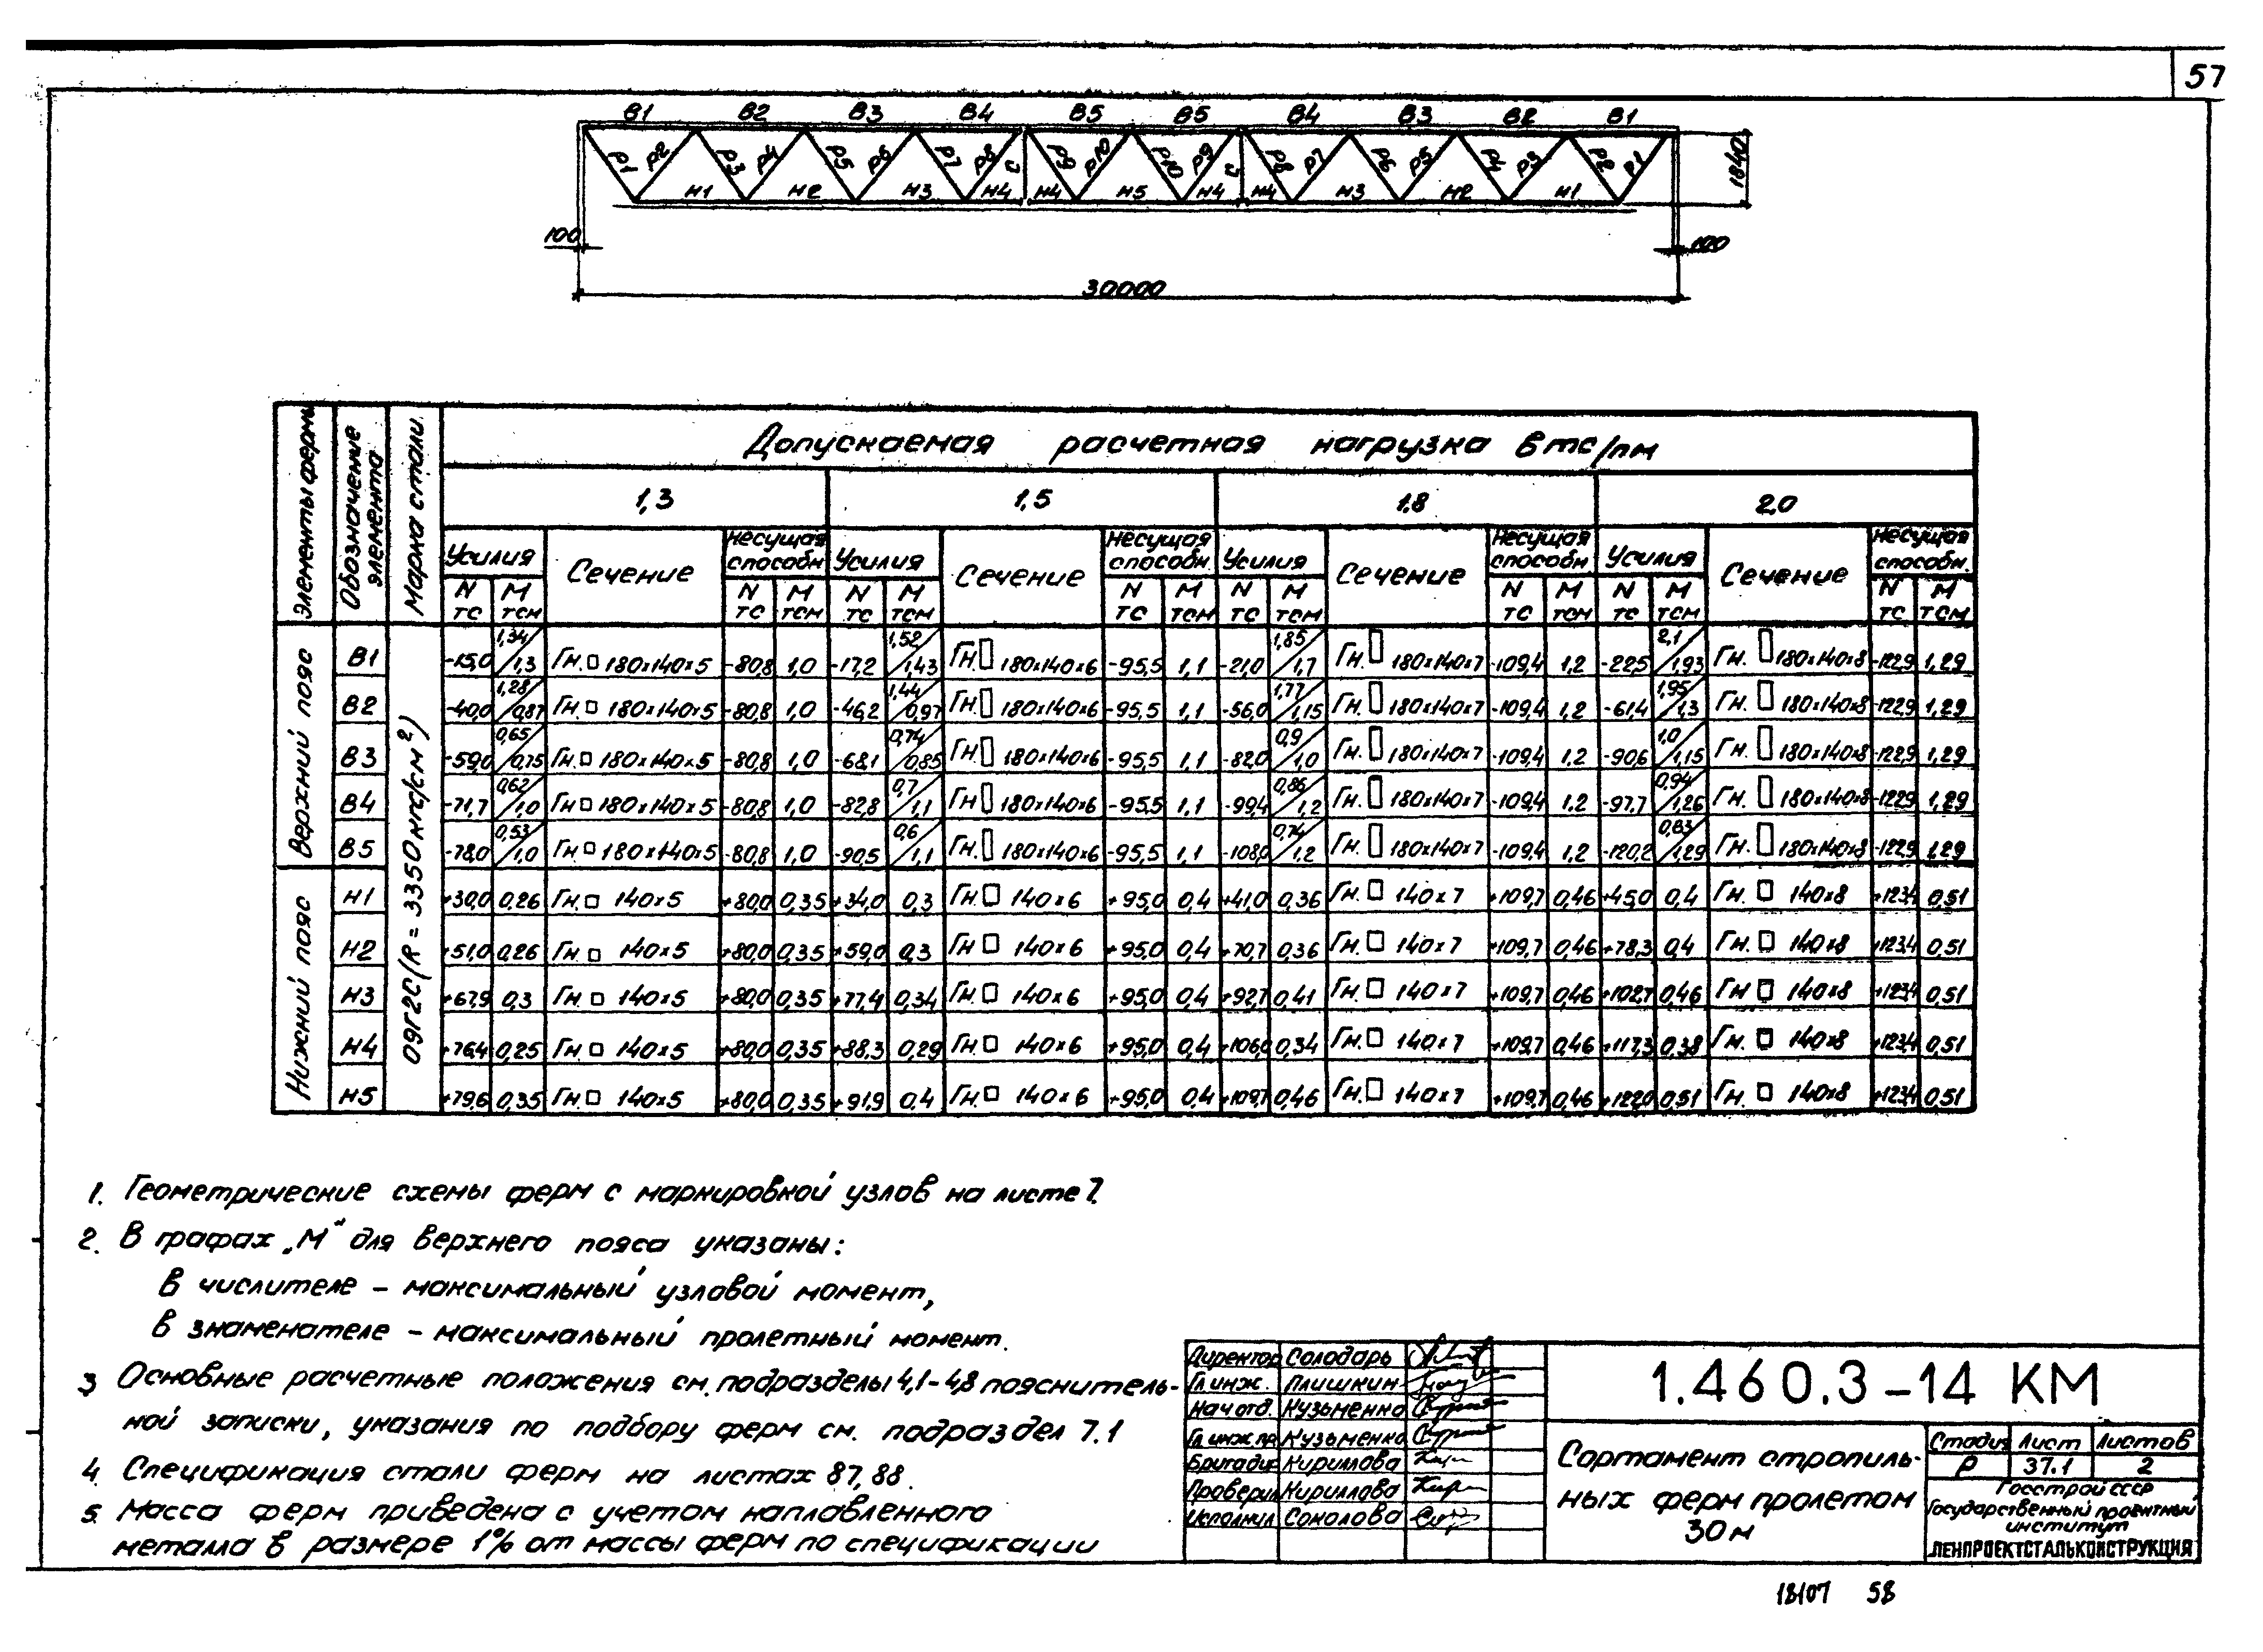 57
В1 В2 В3 В4 В5 В5 В4 В3 В2 В1
Р1 Р2 Р3 Р4 Р5 Р6 Р7 Р8 С Р9 Р10 Р10 Р9 С Р8 Р7 Р6 Р5 Р4 Р3 Р2 Р1
Н1 Н2 Н3 Н4 Н4 Н5 Н4 Н4 Н3 Н2 Н1
1840
100
100
30000
Элементы фермы
Обозначение элемента
Марка стали
Допускаемая расчетная нагрузка в тс/пм
1,3 1,5 1.8 2.0
Усилия Сечение Несущая способн. Усилия Сечение Несущая способн. Усилия Сечение Несущая способн. Усилия Сечение Несущая способн.
N тс М тсм N тс М тсм N тс М тсм N тс М тсм N тс М тсм N тс М тсм N тс М тсм N тс М тсм
Верхний пояс
Нижний пояс
09Г2С (R = 3350 кгс/см²)
В1 -15,0 1,34/1,3 Гн. □ 180х140х5 -80,8 1,0 -17,2 1,52/1,43 Гн. □ 180х140х6 -95,5 1,1 -21,0 1,85/1,7 Гн. □ 180х140х7 -109,4 1,2 -22,5 2,1/1,93 Гн. □ 180х140х8 -122,9 1,29
В2 -40,0 1,28/0,87 Гн. □ 180х140х5 -80,8 1,0 -46,2 1,44/0,97 Гн. □ 180х140х6 -95,5 1,1 -56,0 1,77/1,15 Гн. □ 180х140х7 -109,4 1,2 -61,4 1,95/1,3 Гн. □ 180х140х8 -122,9 1,29
В3 -59,0 0,65/0,75 Гн. □ 180х140х5 -80,8 1,0 -68,1 0,74/0,85 Гн □ 180х140х6 -95,5 1,1 -82,0 0,9/1,0 Гн. □ 180х140х7 -109,4 1,2 -90,6 1,0/1,15 Гн. □ 180х140х8 -122,9 1,29
В4 -71,7 0,62/1,0 Гн □ 180х140х5 -80,8 1,0 -82,8 0,7/1,1 Гн □ 180х140х6 -95,5 1,1 -99,4 0,86/1,2 Гн. □ 180х140х7 -109,4 1,2 -97,7 0,94/1,26 Гн. □ 180х140х8 -122,9 1,29
В5 -78,0 0,53/1,0 Гн. □ 180х140х5 -80,8 1,0 -90,5 0,6/1,1 Гн. □ 180х140х6 -95,5 1,1 -108,0 0,74/1,2 Гн. □ 180х140х7 -109,4 1,2 -120,2 0,83/1,29 Гн. □ 180х140х8 -122,9 1,29
Н1 +30,0 0,26 Гн. □ 140х5 +80,0 0,35 +34,0 0,3 Гн. □ 140х6 +95,0 0,4 +41,0 0,36 Гн. □ 140х7 +109,7 0,46 +45,0 0,4 Гн. □ 140х8 +123,4 0,51
Н2 +51,0 0,26 Гн. □ 140х5 +80,0 0,35 +59,0 0,3 Гн □ 140х6 +95,0 0,4 +70,7 0,36 Гн. □ 140х7 +109,7 0,46 +78,3 0,4 Гн. □ 140х8 +123,4 0,51
Н3 +67,9 0,3 Гн. □ 140х5 +80,0 0,35 +77,4 0,34 Гн. □ 140х6 +95,0 0,4 +92,7 0,41 Гн. □ 140х7 +109,7 0,46 +102,7 0,46 Гн □ 140х8 +123,4 0,51
Н4 +76,4 0,25 Гн. □ 140х5 +80,0 0,35 +88,3 0,29 Гн. □ 140х6 +95,0 0,4 +106,0 0,34 Гн. □ 140х7 +109,7 0,46 +117,3 0,38 Гн. □ 140х8 +123,4 0,51
Н5 +79,6 0,35 Гн. □ 140х5 +80,0 0,35 +91,9 0,4 Гн. □ 140х6 +95,0 0,4 +109,7 0,46 Гн. □ 140х7 +109,7 0,46 +122,0 0,51 Гн. □ 140х8 +123,4 0,51
1. Геометрические схемы ферм с маркировкой узлов на листе 7.
2. В графах „М" для верхнего пояса указаны:
в числителе – максимальный узловой момент,
в знаменателе – максимальный пролетный момент.
3 Основные расчетные положения см. подразделы 4,1–4,8 пояснитель-
ной записки, указания по подбору ферм см. подраздел 7.1
4. Спецификация стали ферм на листах 87, 88.
5. Масса ферм приведена с учетом наплавленного
металла в размере 1% от массы ферм по спецификации
Директор Солодарь
Гл инж. Плишкин
Нач отд. Кузьменко
Гл инж пр Кузьменко
Бригадир Кириллова
Проверил Кириллова
Исполнил Соколова
1.460.3-14 КМ
Сортамент стропиль-
ных ферм пролетом
30м
Стадия Лист Листов
Р 37.1 2
Госстрой СССР
Государственный проектный
институт
ЛЕНПРОЕКТСТАЛЬКОНСТРУКЦИЯ
18107 58